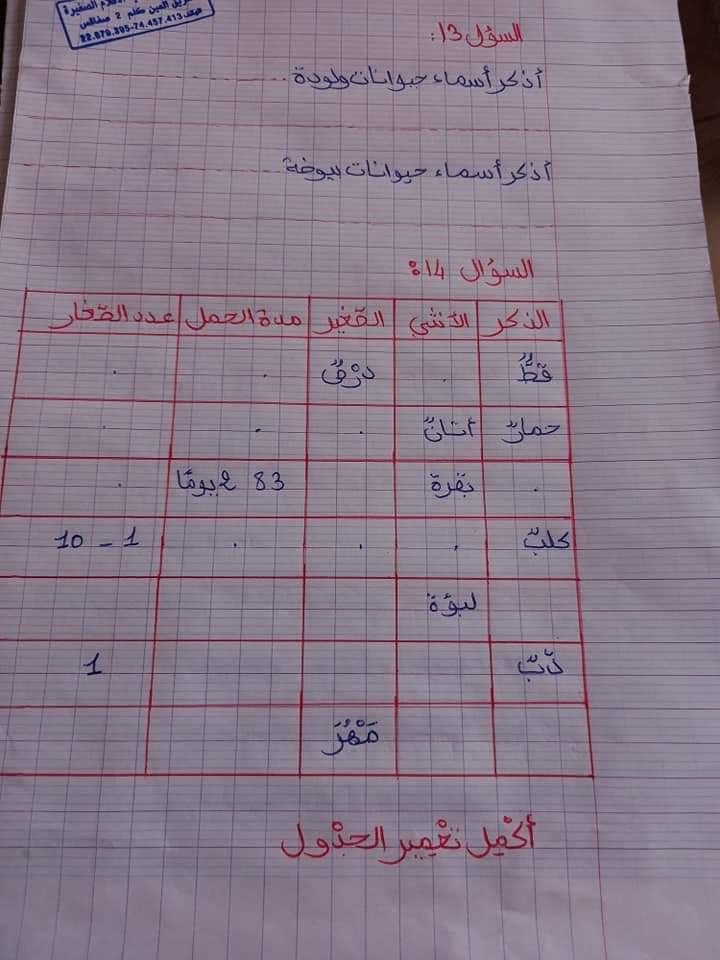 فريق العين كلم 2 صفاقس
22.870.395-74.457.413
السؤل 13:
أذكر أسماء حيوانات ولودة
أذكر أسماء حيوانات بيوضة
السؤال 14:
الذكر الأنثى الصّغير مدة الحمل عدد الصّغار
قطٌّ . دِرْصٌ . .
حمارٌ أتانٌ . . .
. بقرة 283 يومًا .
كلبٌ . . . 1 - 10
لبؤة
دّبٌ 1
مَهْرُ
أكْمِل تعْمِير الجدْول